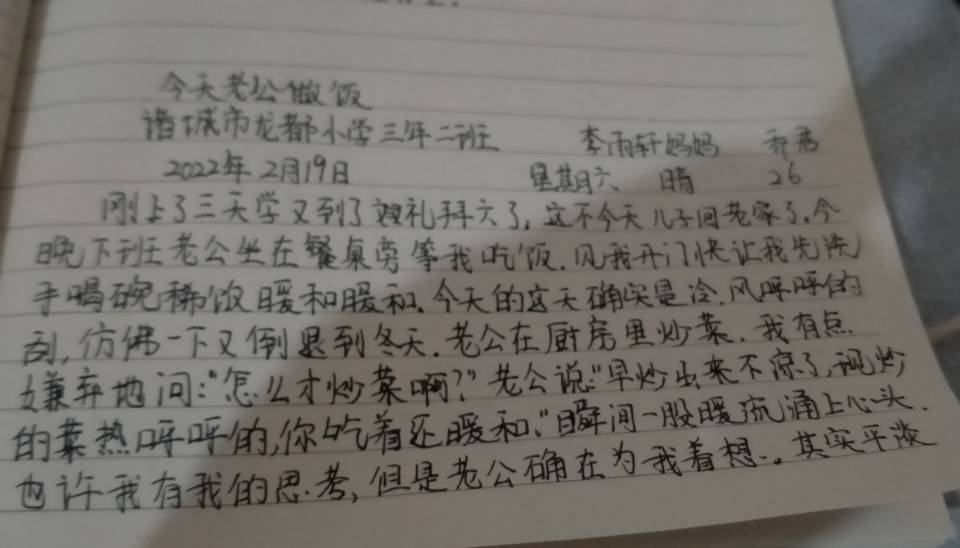 今天老公做饭
诸城市龙都小学三年二班 李雨轩妈妈
2022年2月19日 星期六 晴 26
刚上了三天学又到了礼拜六了,这不今天儿子回老家了.今
晚下班老公坐在餐桌旁等我吃饭.见我开门快让我先洗
手喝碗稀饭暖和暖和.今天的这天确实是冷.风呼呼的
刮,仿佛一下又倒退到冬天.老公在厨房里炒菜.我有点
嫌弃地问:"怎么才炒菜啊?"老公说:"早炒出来不凉了,现炒
的菜热呼呼的,你吃着还暖和."瞬间一股暖流涌上心头.
也许我有我的思考,但是老公确在为我着想.。其实平淡